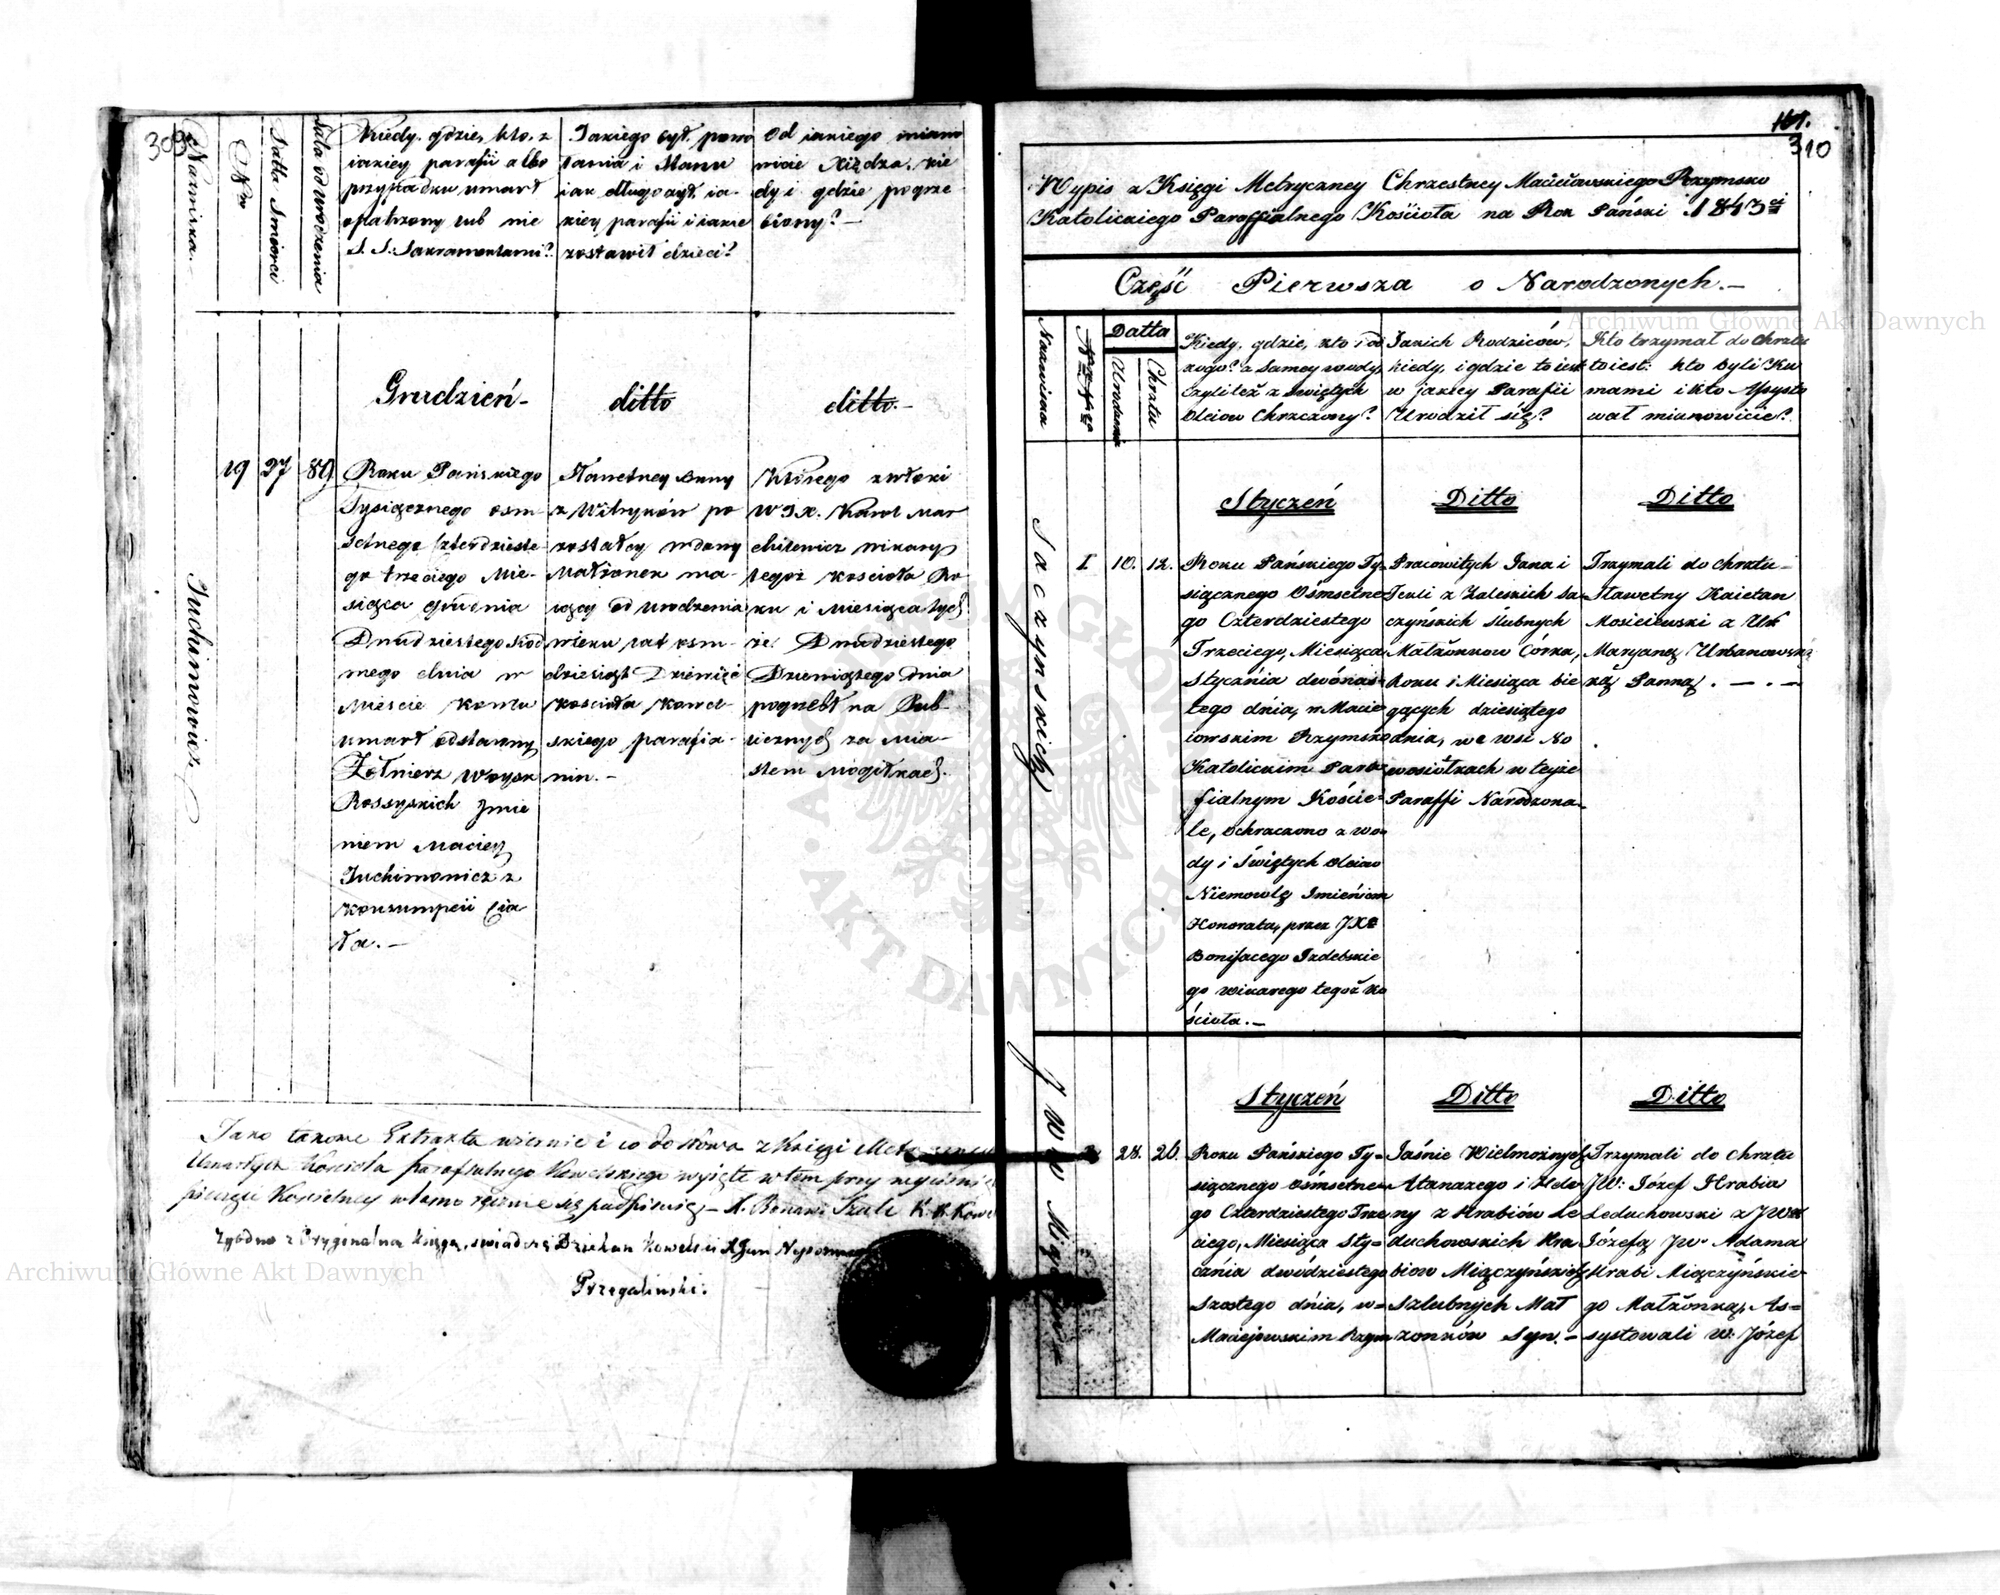 309
Nazwiska.
Nro
Datta Smierci
Lata od urodzenia
Kiedy, gdzie, kto, z
iakiey parafii albo
przypadku umarł
opatrzony lub nie
S. S: Sakramentami?
Jakiego był powo
łania i Stanu
iak długo żył ia-
kiey parafii i iakie
zostawił dzieci?
Od iakiego miano
wicie Xiędza, kie
dy i gdzie pogrze
biony? —
Grudzień -
ditto
ditto. -
Juchimowicz
19
27
89
Roku Pańskiego
Tysiącznego osm-
setnego Czterdzieste-
go trzeciego Mie-
siąca Grudnia
Dwudziestego siód
mego dnia w
Mieście Kowlu
umarł odstawny
Żołnierz Woysk
Rossyskich Jmie
niem Maciey
Juchimowicz z
konzumpcii Cia
ła. —
Sławetney Anny
z Witryków po
zostałey wdowy
Małżonek ma-
iący od urodzenia
wieku lat osm-
dziesiąt Dziewięć
kościoła Kowel-
skiego parafia-
nin. -
Którego zwłoki
W J X. Karol Mar
chilewicz wikary
tegoż kościoła Ro
ku i Miesiąca tych
że Dwudziestego
Dziewiątego dnia
pogrzebł na Pub-
licznych za Mia-
stem Mogiłkach.
Jako takowe Extrakta wiernie i co do słowa z Księgi
Umarłych Kościoła parafialnego Kowelskiego wyięte w tem przy wyciśnie
pieczęci Kościelney własno ręcznie się podpisuię - X.
Zgodno z Oryginalną księgą, świadczę Dziekan Kowelski X Jan
Przegaliński.
161.
310
Wypis z Księgi Metryczney Chrzestney Macieiowskiego Rzymsko
Katolickiego Paraffialnego Kościoła na Rok Pański 1843ci
Część Pierwsza o Narodzonych. —
Nazwiska
Datta
Urodzenia
Chrztu
Kiedy, gdzie, kto i od
kogo? z samey wody,
czyliteż z świętych
Oleiow Chrzczony?
Jakich Rodziców,
kiedy, i gdzie to iest
w jakiey Parafii
Urodził się?
Kto trzymał do chrztu
toiest: kto byli Ku
mami i kto Assysto
wał mianowicie?
Styczeń
Ditto
Ditto
Saczynskich
I
10.
12.
Roku Pańskiego Ty-
siącznego Ośmsetne
go Czterdziestego
Trzeciego, Miesiąca
Stycznia dwónas-
tego dnia, w Macie
iowskim Rzymsko
Katolickim Para
fialnym Koście-
le, ochrzczono z wo-
dy i Świętych Oleiow
Niemowlę Imieniem
Honorata, przez JXa
Bonifacego Izdebskie
go wikarego tegoż Ko
ścioła. —
Pracowitych Jana i
Tekli z Zaleskich Sa-
czyńskich ślubnych
Małżonkow Córka,
Roku i Miesiąca bie
gących dziesiątego
dnia, we wsi No
wosiółkach w teyże
Paraffi Narodzona.
Trzymali do chrztu
Sławetny Kaietan
Mosiciewski z Ur
Maryanną Urbanowsk
ką Panną. — . —
Styczeń
Ditto
Ditto
JWW Miączyński
28.
26.
Roku Pańskiego Ty-
siącznego Ośmsetne-
go Czterdziestego Trze
ciego, Miesiąca Sty-
cznia dwódziestego
Szostego dnia, w-
Maciejowskim Rzym
Jaśnie Wielmożnych
Atanazego i Hele
ny z Hrabiów Le
duchowskich Hra
biow Miączyńskich
Szlubnych Mał
żonków Syn. -
Trzymali do chrztu
JW: Józef Hrabia
Leduchowski z JWW
Józefą JW. Adama
Hrabi Miączyńskie
go Małżonką, As-
systowali W: Józef
Archiwum Główne Akt Dawnych
Archiwum Główne Akt Dawnych